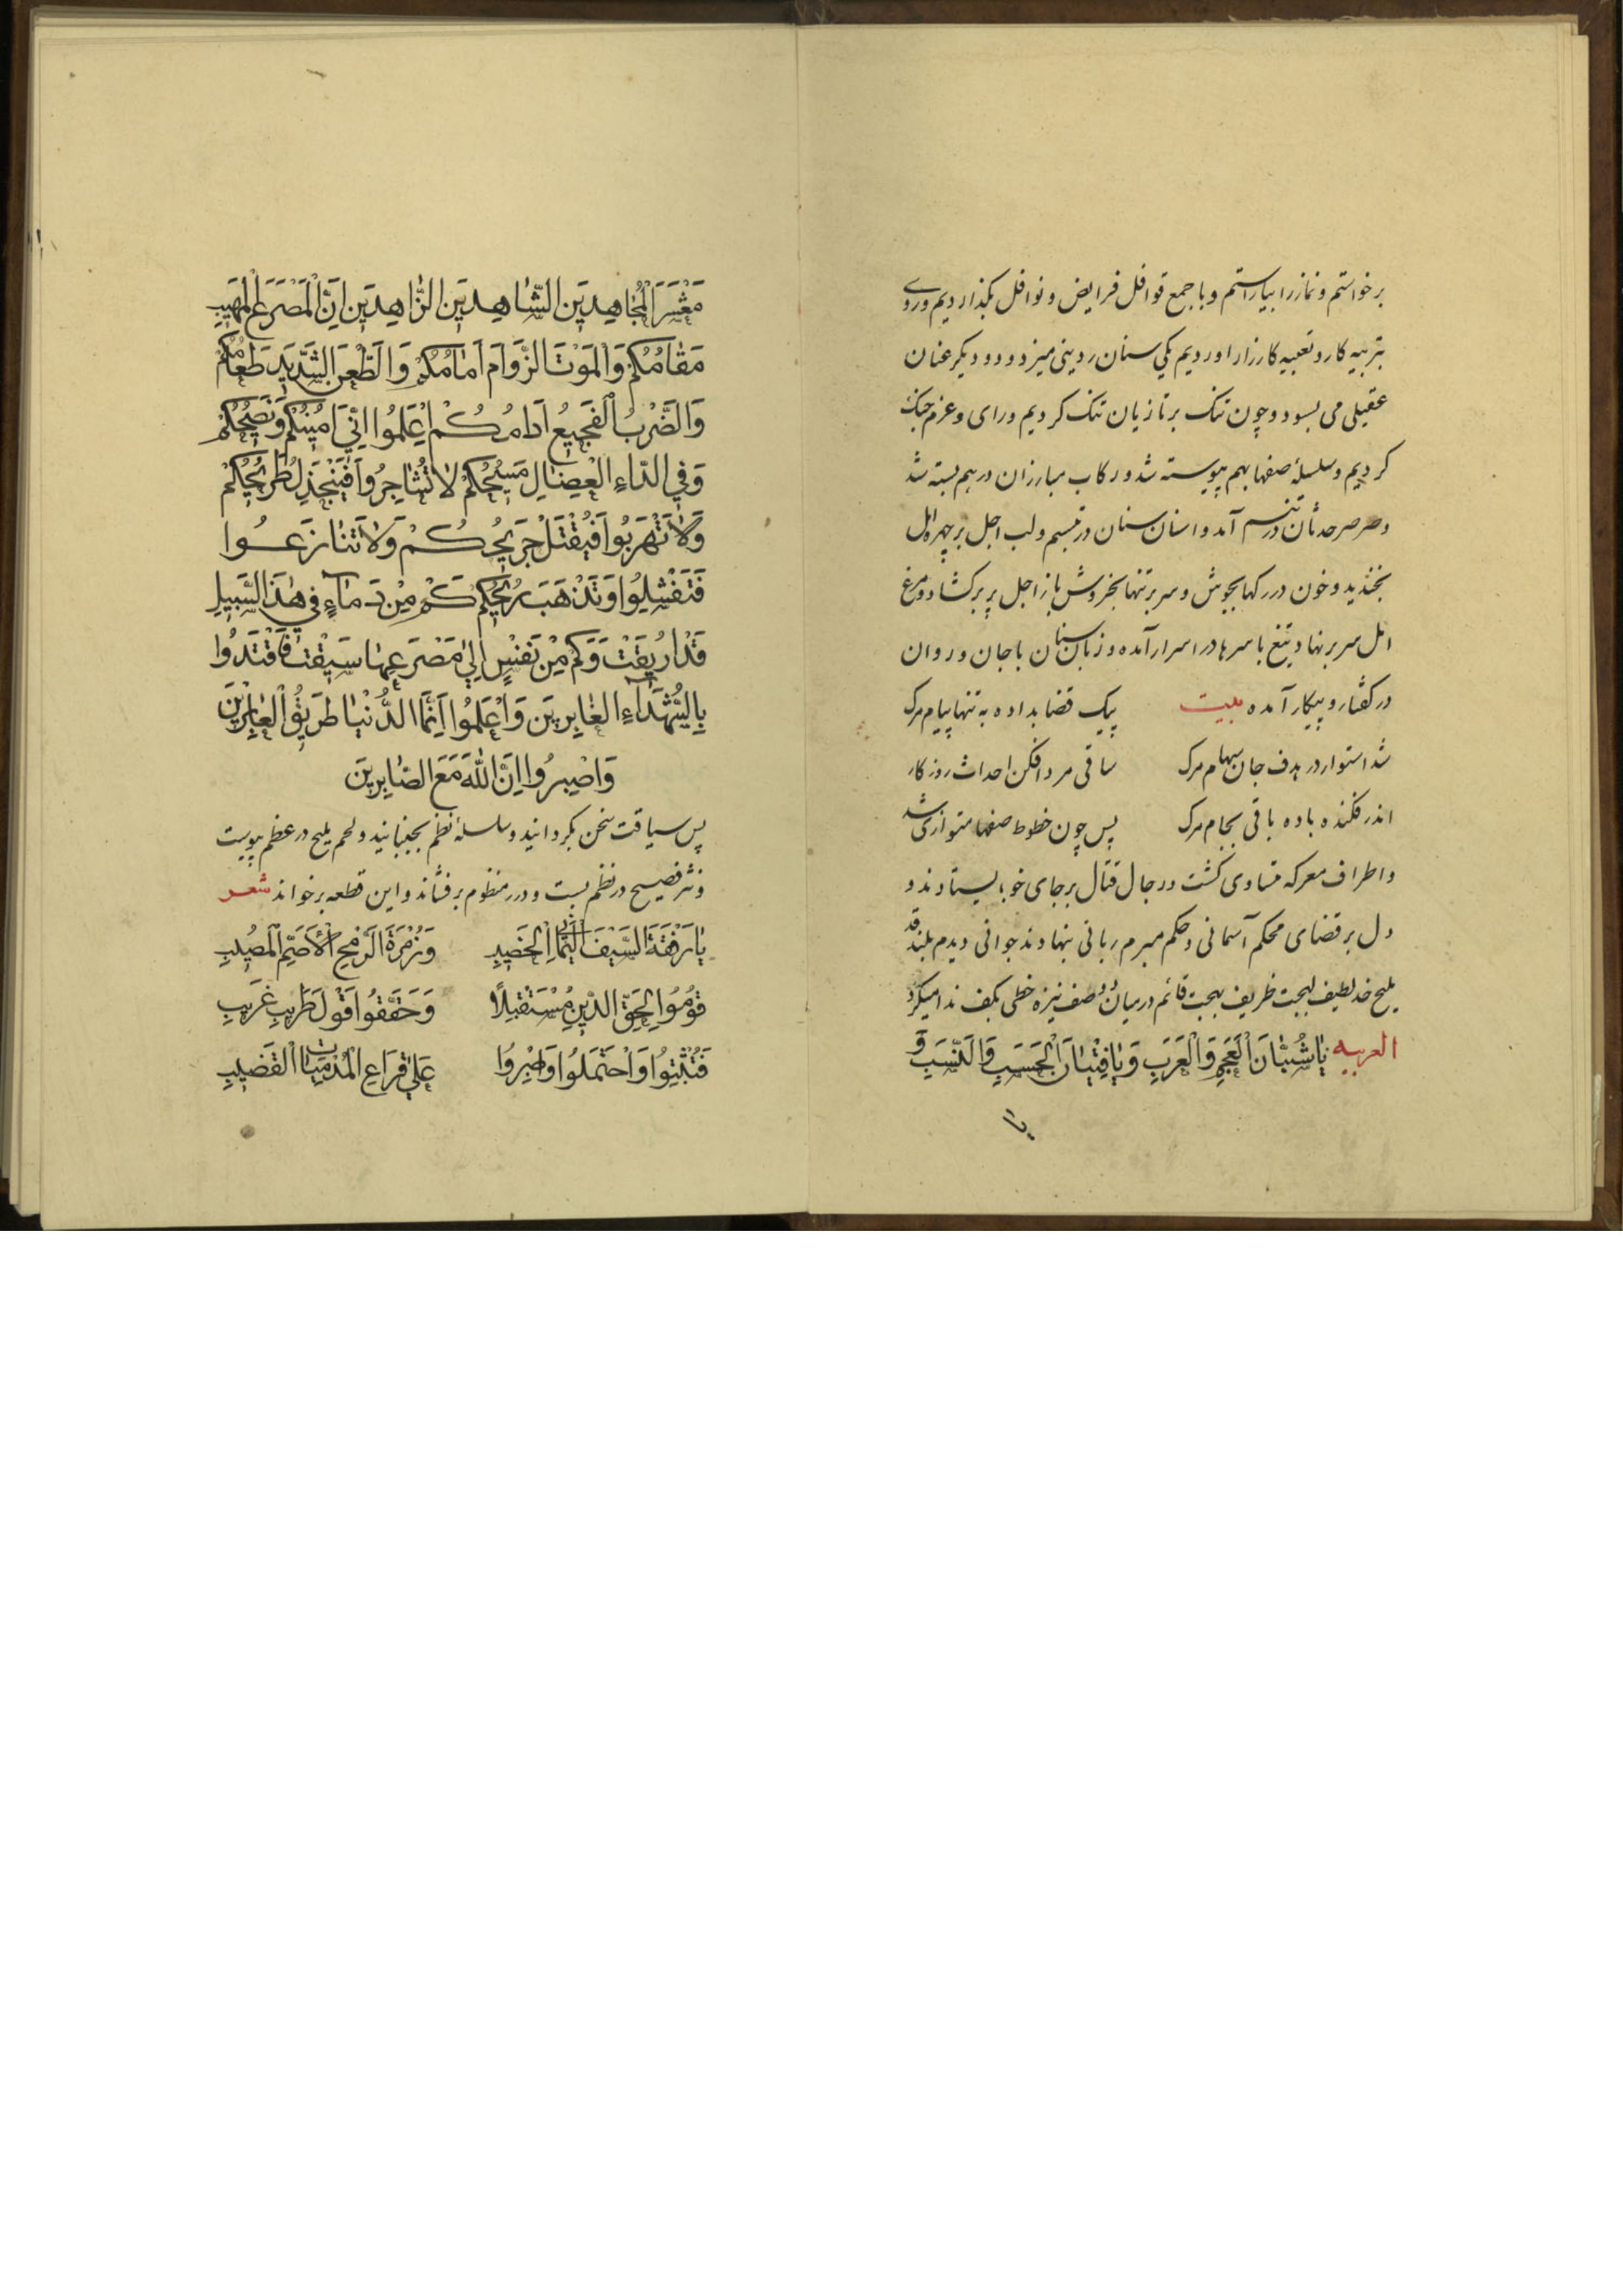 برخواستم و نماز را بیاراستم و با جمع قوافل فرایض و نوافل بگذاردیم و روی
بتربیه کار و تعبیه کارزار اوردیم یکی سنان ردینی میزدود و دیگر عنان
عقیلی می بسود و چون تنک بر تازیان تنک کردیم و رای و عزم جنک
کردیم و سلسلهٔ صفها بهم پیوسته شد و رکاب مبارزان در هم بسته شد
و صرصر حدثان در تنسم آمد و اسنان سنان در تبسم و لب اجل بر چهره امل
بخندید و خون در رکها بجوش و سر بر تنها بخروش باز اجل پر برکشاد و مرغ
امل سر بنهاد تیغ با سرها در اسرار آمده و زبان سنان با جان و روان
در گفتار و پیکار آمده بیت
پیک قضا بداده به تنها پیام مرک
شد استوار در هدف جان سهام مرک
ساقی مرد افکن احداث روزکار
اندر فکنده باده باقی بجام مرک
پس چون خطوط صفها متوازی شد
و اطراف معرکه متساوی کشت و رجال قتال بر جای خود بایستادند و
دل بر قضای محکم آسمانی و حکم مبرم ربانی بنهادند جوانی دیدم بلند قد
ملیح خد لطیف لهجت ظریف بهجت قائم در میان دو صف نیزه خطی بکف ندا میکرد
العربیه یا شُبَّانَ الْعَجَمِ وَالْعَرَبِ وَیا فِتْیانَ الْحَسَبِ وَالنَّسَبِ وَ
یا
مَعْشَرَ الْمُجاهِدینَ الشّاهِدینَ الزّاهِدینَ اِنَّ الْمَصْرَعَ الْمَهیبَ
مَقامُکُمْ وَالْمَوْتَ الزَّوامَ اَمامُکُمْ وَالطَّعْنَ الشَّدیدَ طَعامُکُمْ
وَالضَّرْبُ الْفَجیعُ اَدامُکُمْ اِعْلَمُوا اِنّی اَمینُکُمْ وَنَصیحُکُمْ
وَفِی الدّاءِ الْعِضالِ مَسیحُکُمْ لا تُشاجِرُوا فَیَنْجَذِلُ طَریحُکُمْ
وَلا تَهْرَبُوا فَیُقْتَلَ جَریحُکُمْ وَلا تَنازَعُوا
فَتَفْشَلُوا وَتَذْهَبَ ریحُکُمْ کَمْ مِنْ دِماءٍ فی هٰذَا السَّبیلِ
قَدْ اُریقَتْ وَکَمْ مِنْ نَفْسٍ اِلی مَصْرَعِها سیقَتْ فَاقْتَدُوا
بِالشُّهَداءِ الْغابِرینَ وَاعْلَمُوا اَنَّمَا الدُّنْیا طَریقُ الْعابِرینَ
وَاصْبِرُوا اِنَّ اللّٰهَ مَعَ الصّابِرینَ
پس سیاقت سخن بگردانید و سلسلهٔ نظم بجنبانید و لحم ملیح در عظم پیوست
و نثر فصیح در نظم بست و درر منظوم برفشاند و این قطعه برخواند شعر
یا رِفْقَةَ السَّیْفِ الْیَمانِ الْخَضیبِ وَزُمْرَةَ الرُّمْحِ الْاَصَمِّ الْمُصیبِ
قُومُوا لِحَقِّ الدّینِ مُسْتَقْبِلًا وَحَقِّقُوا قَوْلَ طَریبِ غَریبِ
فَثَبِّتُوا وَاحْتَمِلُوا وَاصْبِرُوا عَلی قِراعِ الْقَضیبِ